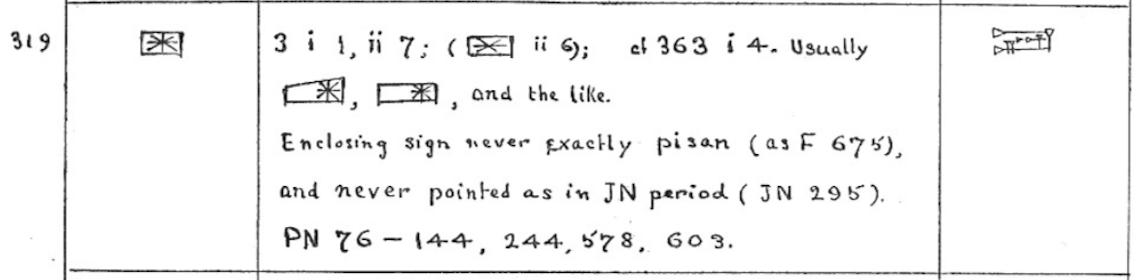 319 3 i 1, ii 7; ( ii 6); cf 363 i 4. Usually
, , and the like.
Enclosing sign never exactly pisan (as F 675),
and never pointed as in JN period (JN 295).
PN 76 – 144, 244, 578, 603.